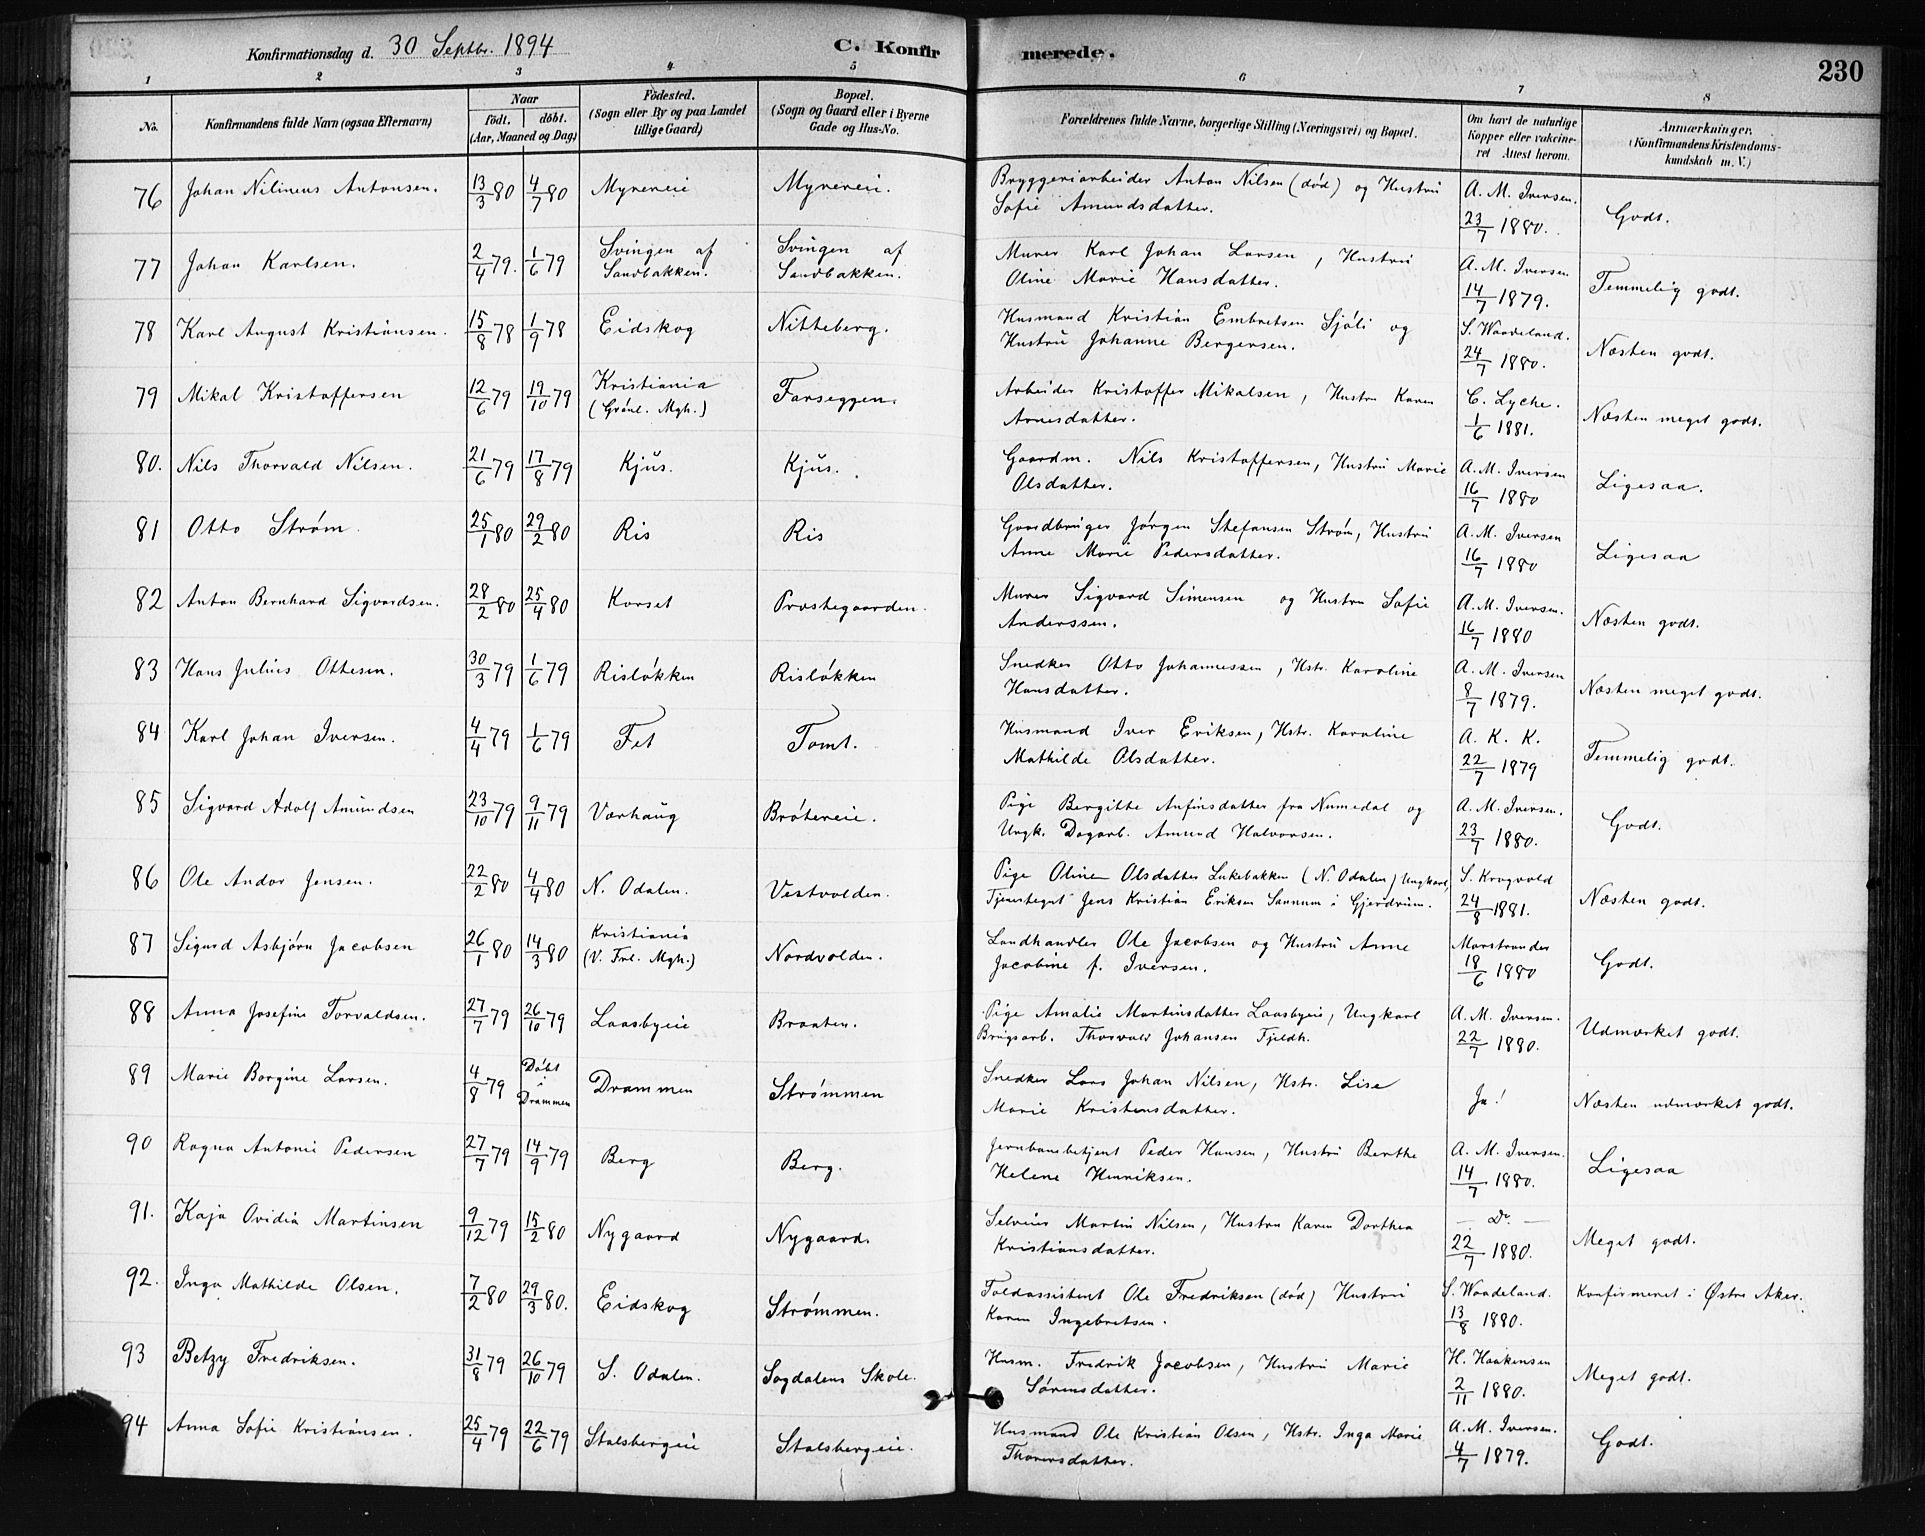 Konfirmationsdag d. 30 Septbr. 1894
C. Konfirmerede.
230
1 2 3 4 5 6 7 8
No. | Konfirmandens fulde Navn (ogsaa Efternavn) | Naar født. | døbt. (Aar, Maaned og Dag) | Fødested. (Sogn eller By og paa Landet tillige Gaard) | Bopæl. (Sogn og Gaard eller i Byerne Gade og Hus-No. | Forældrenes fulde Navne, borgerlige Stilling (Næringsvei) og Bopæl. | Om havt de naturlige Kopper eller vakcineret Attest herom. | Anmærkninger. (Konfirmandens Kristendomskundskab m. V.)
76 Johan Nilinius Antonsen. 13/3 80 4/7 80 Myrereie Myrereie. Bryggeriarbeider Anton Nilsen (død) og Hustru Sofie Amundsdatter. A. M. Iversen. 23/7 1880. Godt.
77 Johan Karlsen. 2/4 79. 1/6 79 Svingen af Sandbakken. Svingen af Sandbakken. Murer Karl Johan Larsen, Hustru Oline Marie Hansdatter. A. M. Iversen 14/7 1879. Temmelig godt.
78 Karl August Kristiansen. 15/8 78 1/9 78 Eidskog Nitteberg. Husmand Kristian Embretsen Sjøli og Hustru Johanne Bergersen. S. Waadeland. 24/7 1880. Næsten godt.
79 Mikal Kristoffersen 12/6 79 19/10 79 Kristiania (Grønl. Mgh.) Farseggen. Arbeider Kristoffer Mikalsen, Hustru Karen Arnesdatter. C. Lyche. 1/6 1881. Næsten meget godt.
80. Nils Thorvald Nilsen. 21/6 79 17/8 79 Kjus. Kjus. Gaardm. Nils Kristoffersen, Hustru Marie Olsdatter. A. M. Iversen 16/7 1880 Ligesaa.
81 Otto Strøm. 25/1 80 29/2 80 Ris Ris Gaardbruger Jørgen Stefansen Strøm, Hustru Anne Marie Pedersdatter. A. M. Iversen 16/7 1880 Ligesaa
82 Anton Bernhard Sigvardsen. 28/2 80 25/4 80 Korset Præstegaarden. Murer Sigvard Simensen og Hustru Sofie Anderssen. A. M. Iversen. 16/7 1880 Næsten godt.
83 Hans Julius Ottesen. 30/3 79 1/6 79 Risløkken Risløkken Snedker Otto Johannessen, Hstr. Karoline Hansdatter. A. M. Iversen 8/7 1879. Næsten meget godt.
84 Karl Johan Iversen. 4/4 79 1/6 79 Fet Tomt. Husmand Iver Eriksen, Hstr. Karoline Mathilde Olsdatter. A. K. K. 22/7 1879 Temmelig godt.
85 Sigvard Adolf Amundsen 23/10 79 9/11 79 Værhaug Brøtereie. Pige Bergitte Anfinsdatter fra Numedal og Ungk. Dagarb. Amund Halvorsen. A. M. Iversen. 23/7 1880. Godt.
86 Ole Andor Jensen. 22/2 80 4/4 80 N. Odalen. Vestvolden. Pige Oline Olsdatter Lukebakken (N. Odalen) Ungkarl Tjenestegut Jens Kristian Eriksen Sannum i Gjerdrum. S. Krogvold 24/8 1881. Næsten godt.
87 Sigurd Asbjørn Jacobsen 26/1 80 14/3 80 Kristiania (V. Frl. Mgh.) Nordvolden. Landhandler Ole Jacobsen og Hustru Anne Jacobine f. Iversen. Morstrander 18/6 1880 Godt.
88 Anna Josefine Torvaldsen. 27/7 79 26/10 79 Laasbyeie Braaten. Pige Amalie Martinsdatter Laasbyeie, Ungkarl Brugsarb. Thorvald Johansen Fjeldh. A. M. Iversen. 22/7 1880. Udmærket godt.
89 Marie Borgine Larsen. 4/8 79 Døbt i Drammen Drammen Strømmen Snedker Lars Johan Nilsen, Hstr. Lise Marie Kristensdatter. Ja! Næsten udmærket godt.
90 Ragna Antonie Pedersen 27/7 79 14/9 79 Berg Berg. Jernbanebetjent Peder Hansen, Hustru Berthe Helene Henriksen. A. M. Iversen. 14/7 1880. Ligesaa
91. Kaja Ovidia Martinsen 9/12 79 15/2 80 Nygaard Nygaard. Selveier Martin Nilsen, Hustru Karen Dorthea Kristiansdatter. – Do. – 22/7 1880. Meget godt.
92. Inga Mathilde Olsen. 7/2 80 29/3 80. Eidskog Strømmen. Toldassistent Ole Fredriksen (død) Hustru Karen Ingebretsen. S. Waadeland. 13/8 1880. Konfirmeret i Østre Aker.
93 Betzy Fredriksen. 31/8 79 26/10 79 S. Odalen. Sagdalens Skole. Husm. Fredrik Jacobsen, Hustru Marie Sørensdatter. H. Haakensen 2/11 1880. Meget godt.
94 Anna Sofie Kristiansen. 25/4 79 22/6 79 Stalsbergeie Stalsbergeie. Husmand Ole Kristian Olsen, Hstr. Inga Marie Thorersdatter. A. M. Iversen. 4/7 1879. Godt.